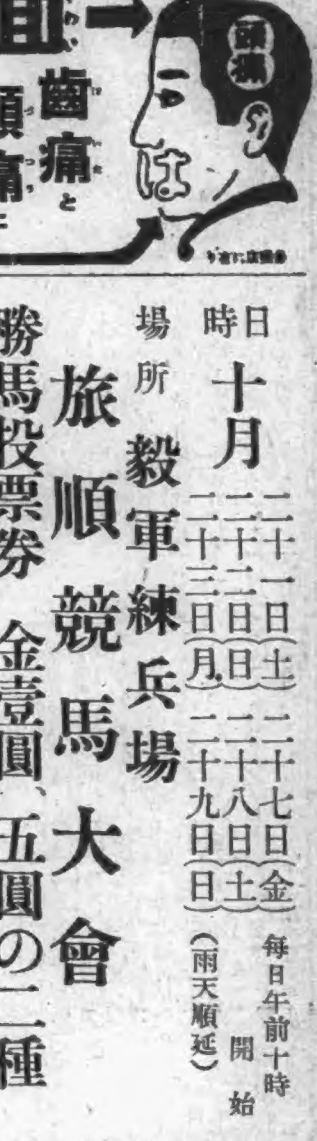 頭痛
は
歯痛と
頭痛に
日時
十月
二十一日(土)
二十二日(日)
二十三日(月)
二十七日(金)
二十八日(土)
二十九日(日)
毎日午前十時
開始
(雨天順延)
場所
毅軍練兵場
旅順競馬大會
勝馬投票券 金壹圓、五圓の二種